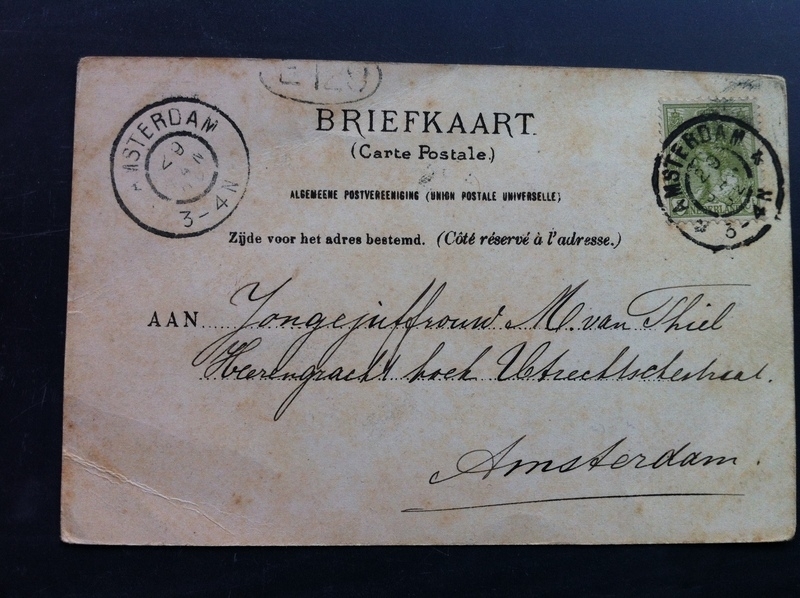 E 129
BRIEFKAART.
(Carte Postale.)
ALGEMEENE POSTVEREENIGING (UNION POSTALE UNIVERSELLE)
Zijde voor het adres bestemd. (Côté réservé à l'adresse.)
AMSTERDAM
3-4N
AMSTERDAM
3-4N
AAN Jongejuffrouw M. van Thiel
Heerengracht hoek Utrechtschestraat.
Amsterdam.